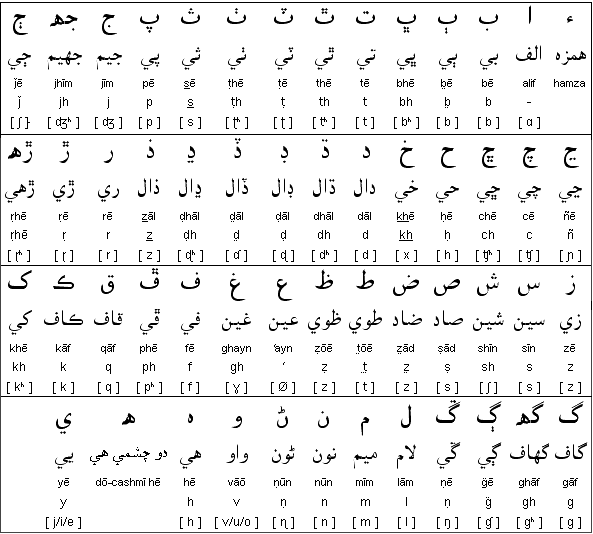 ء ا ب ٻ ڀ ت ٿ ٽ ٺ ث پ ج جھ ڄ
همزه الف بي ٻي ڀي تي ٿي ٽي ٺي ثي پي جيم جهيم ڄي
j̈ē jhīm jīm pē s̲ē ṭhē ṭē thē tē bhē ḅē bē alif hamza
j̈ jh j p s̲ ṭh ṭ th t bh ḅ b -
[ʃ} [dʒʰ] [dʒ] [p] [s] [ʈʰ] [ʈ] [tʰ] [t] [bʰ] [b] [b] [ɑ]
ڃ چ ڇ ح خ د ڌ ڊ ڏ ڍ ذ ر ڙ ڙھ
ڃي چي ڇي حي خي دال ڌال ڊال ڏال ڍال ذال ري ڙي ڙهي
ṛhē ṛē rē z̲āl ḍhāl ḍāl ḍāl dhāl dāl k͟hē ḥē chē cē ñē
ṛhē ṛ r z̲ ḍh ḍ ḍ dh d k͟h ḥ ch c ñ
[ɽʰ] [ɽ] [r] [z] [ɖʰ] [ɗ] [ɖ] [dʰ] [d] [x] [h] [ʧʰ] [ʧ] [ɲ]
ز س ش ص ض ط ظ ع غ ف ڦ ق ڪ ک
زي سين شين صاد ضاد طوي ظوي عين غين في ڦي قاف ڪاف کي
khē kāf qāf phē fē ghayn ‘ayn ẓōē ṭōē ẓād ṣād shīn sīn zē
kh k q ph f gh ‘ ẓ ṭ ẓ ṣ sh s z
[kʰ] [k] [q] [pʰ] [f] [ɣ] [Ø] [z] [t] [z] [s] [ʃ] [s] [z]
گ گھ ڳ ڱ ل م ن ڻ و ه ھ ي
گاف گهاف ڳي ڱي لام ميم نون ڻون واو هي دو چشمي هي يي
yē dō-cashmī hē hē vāō ṇūn nūn mīm lām ṇē g̈ē ghāf gāf
y h v ṇ n m l ṇ g̈ gh g
[j/i/e] [h] [v/u/o] [ɳ] [n] [m] [l] [ŋ] [ɠ] [gʰ] [g]